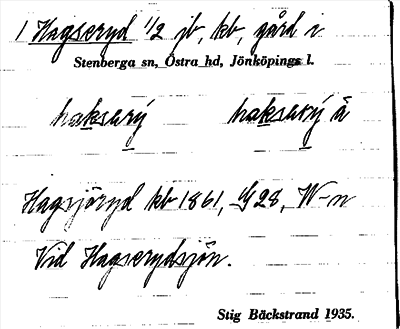 1 Hagseryd 1/2 jb, kb, gård i
Stenberga sn, Östra hd, Jönköpings l.
haksərý haksərý å
Hagsjöryd kb 1861, G28, W-n
Vid Hagserydsjön.
Stig Bäckstrand 1935.